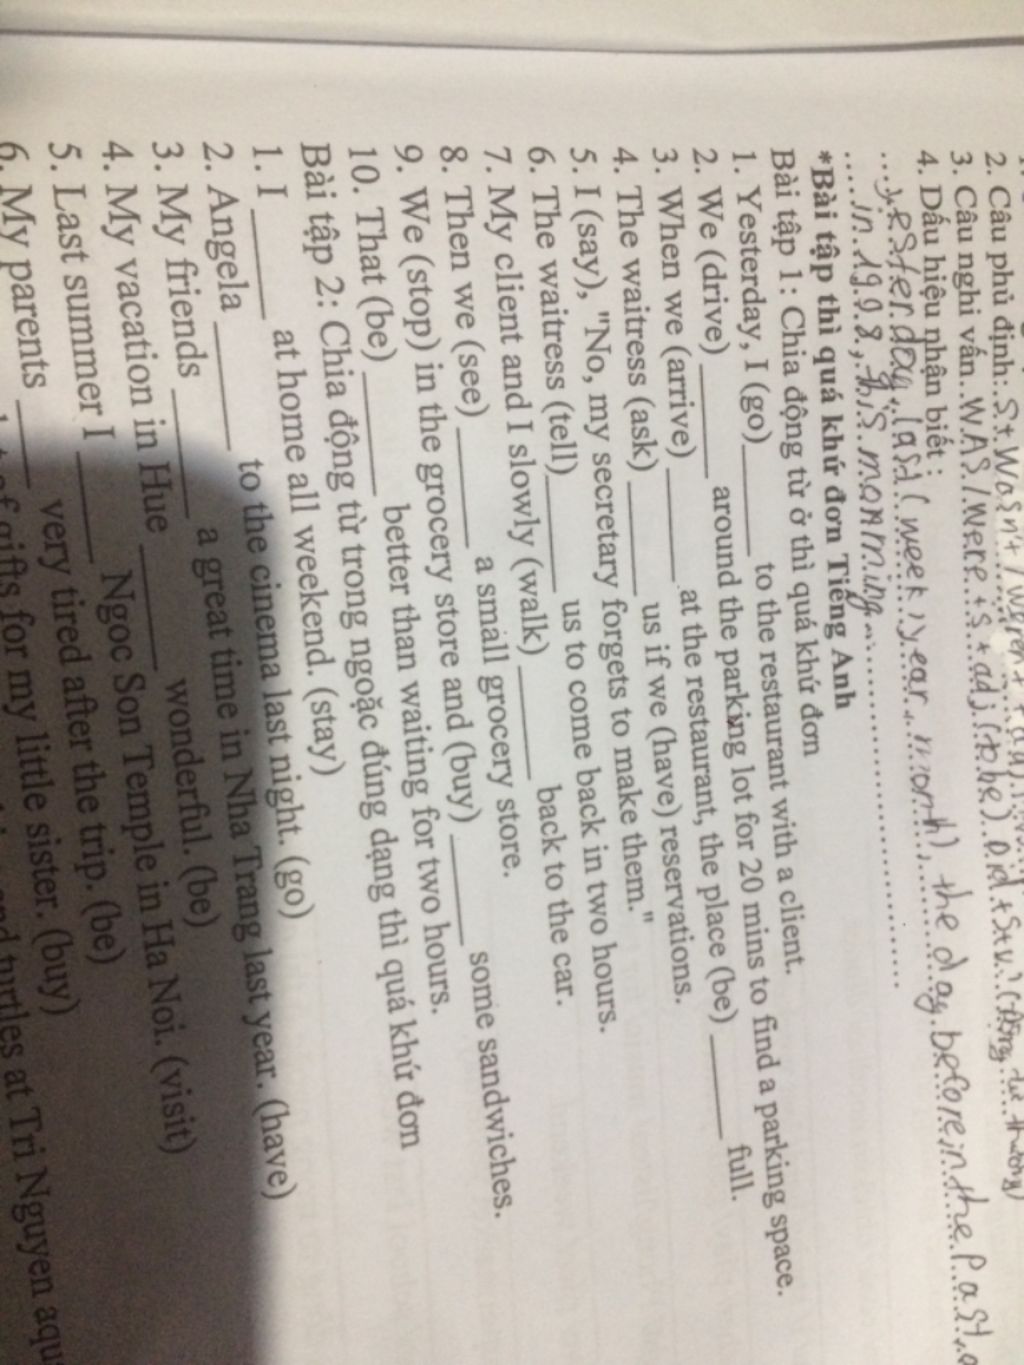 2. Câu phủ định: S + Wasn't /
3. Câu nghi vấn.. WAS / were + S + adj (to be) Did + S + v ?
4. Dấu hiệu nhận biết :
yesterday, last ( week ) year month), the day before in the past
in 1998, this morning
*Bài tập thì quá khứ đơn Tiếng Anh
Bài tập 1: Chia động từ ở thì quá khứ đơn
1. Yesterday, I (go)______ to the restaurant with a client.
2. We (drive) ______ around the parking lot for 20 mins to find a parking space.
3. When we (arrive) ______ at the restaurant, the place (be) ______ full.
4. The waitress (ask) ______ us if we (have) reservations.
5. I (say), "No, my secretary forgets to make them."
6. The waitress (tell)______ us to come back in two hours.
7. My client and I slowly (walk) ______ back to the car.
8. Then we (see) ______ a small grocery store.
9. We (stop) in the grocery store and (buy) ______ some sandwiches.
10. That (be) ______ better than waiting for two hours.
Bài tập 2: Chia động từ trong ngoặc đúng dạng thì quá khứ đơn
1. I ______ at home all weekend. (stay)
2. Angela ______ to the cinema last night. (go)
3. My friends ______ a great time in Nha Trang last year. (have)
4. My vacation in Hue ______ wonderful. (be)
5. Last summer I ______ Ngoc Son Temple in Ha Noi. (visit)
6. My parents ______ very tired after the trip. (be)
gifts for my little sister. (buy)
turtles at Tri Nguyen